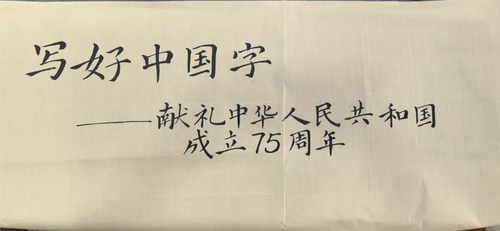 写好中国字
——献礼中华人民共和国
成立75周年